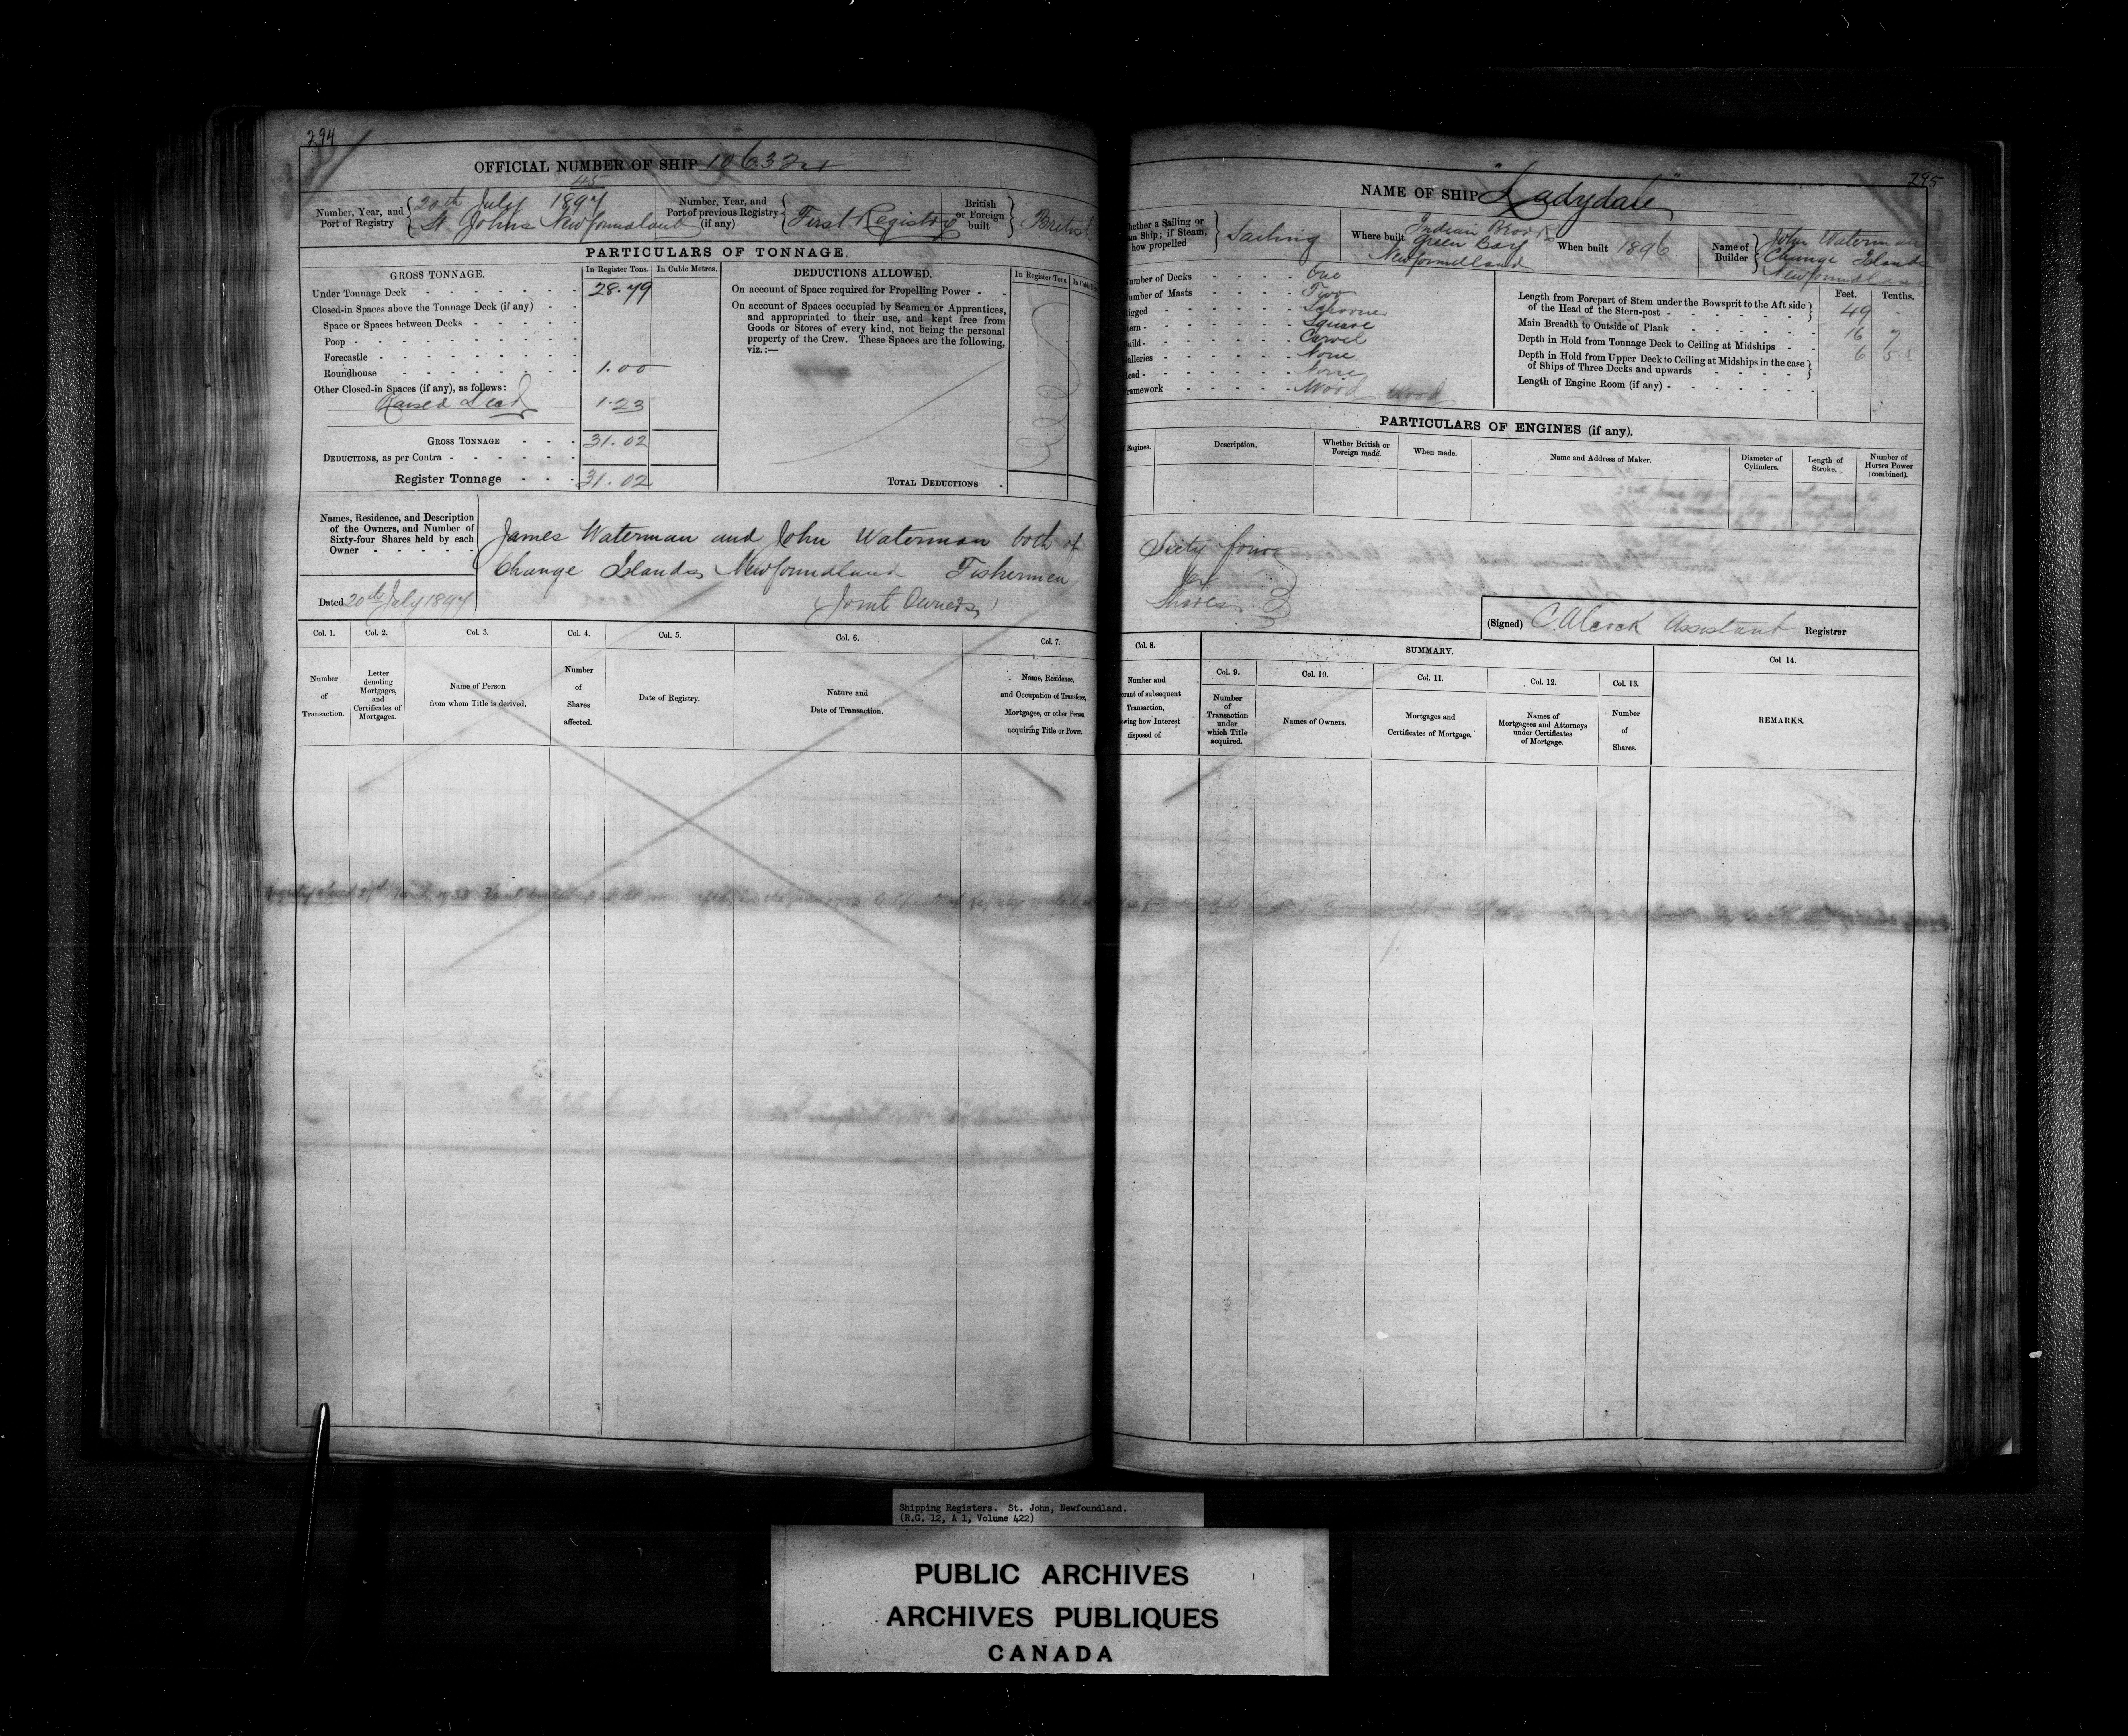 294
OFFICIAL NUMBER OF SHIP 106324
45
Number, Year, and Port of Registry
20th July 1897
St Johns Newfoundland
Number, Year, and Port of previous Registry (if any)
First Registry
British or Foreign built
British
PARTICULARS OF TONNAGE.
GROSS TONNAGE.
In Register Tons.
In Cubic Metres.
Under Tonnage Deck 28.79
Closed-in Spaces above the Tonnage Deck (if any)
Space or Spaces between Decks
Poop
Forecastle
Roundhouse 1.00
Other Closed-in Spaces (if any), as follows:
Raised Deck 1.23
GROSS TONNAGE 31.02
DEDUCTIONS, as per Contra
Register Tonnage 31.02
DEDUCTIONS ALLOWED.
In Register Tons.
On account of Space required for Propelling Power
On account of Spaces occupied by Seamen or Apprentices,
and appropriated to their use, and kept free from
Goods or Stores of every kind, not being the personal
property of the Crew. These Spaces are the following,
viz.:—
TOTAL DEDUCTIONS
Names, Residence, and Description
of the Owners, and Number of
Sixty-four Shares held by each
Owner
James Waterman and John Waterman both of
Change Islands, Newfoundland Fishermen
(Joint Owners)
Dated 20th July 1897
Col. 1. Col. 2. Col. 3. Col. 4. Col. 5. Col. 6. Col. 7.
Number of Transaction.
Letter denoting Mortgages, and Certificates of Mortgages.
Name of Person from whom Title is derived.
Number of Shares affected.
Date of Registry.
Nature and Date of Transaction.
Name, Residence, and Occupation of Transferee, Mortgagee, or other Person acquiring Title or Power.
295
NAME OF SHIP "Ladydale"
whether a Sailing or
Ship; if Steam,
how propelled
Sailing
Where built
Indian Brook
Green Bay
Newfoundland
When built 1896
Name of Builder
John Waterman
Change Islands
Newfoundland
Number of Decks One
Number of Masts Two
Rigged Schooner
Stern Square
Build Carvel
Galleries None
Head None
Framework Wood Wood
Feet. Tenths.
Length from Forepart of Stem under the Bowsprit to the Aft side
of the Head of the Stern-post 49 -
Main Breadth to Outside of Plank 16 7
Depth in Hold from Tonnage Deck to Ceiling at Midships 6 5
Depth in Hold from Upper Deck to Ceiling at Midships in the case
of Ships of Three Decks and upwards
Length of Engine Room (if any)
PARTICULARS OF ENGINES (if any).
Engines.
Description.
Whether British or Foreign made.
When made.
Name and Address of Maker.
Diameter of Cylinders.
Length of Stroke.
Number of Horses Power (combined).
Sixty four
64
Shares
(Signed) C. Alcock Assistant Registrar
Col. 8.
SUMMARY.
Col 14.
Col. 9. Col. 10. Col. 11. Col. 12. Col. 13.
Number and
of subsequent
Transaction,
how Interest
disposed of.
Number of Transaction under which Title acquired.
Names of Owners.
Mortgages and Certificates of Mortgage.
Names of Mortgagees and Attorneys under Certificates of Mortgage.
Number of Shares.
REMARKS.
Shipping Registers. St. John, Newfoundland.
(R.G. 12, A 1, Volume 422)
PUBLIC ARCHIVES
ARCHIVES PUBLIQUES
CANADA